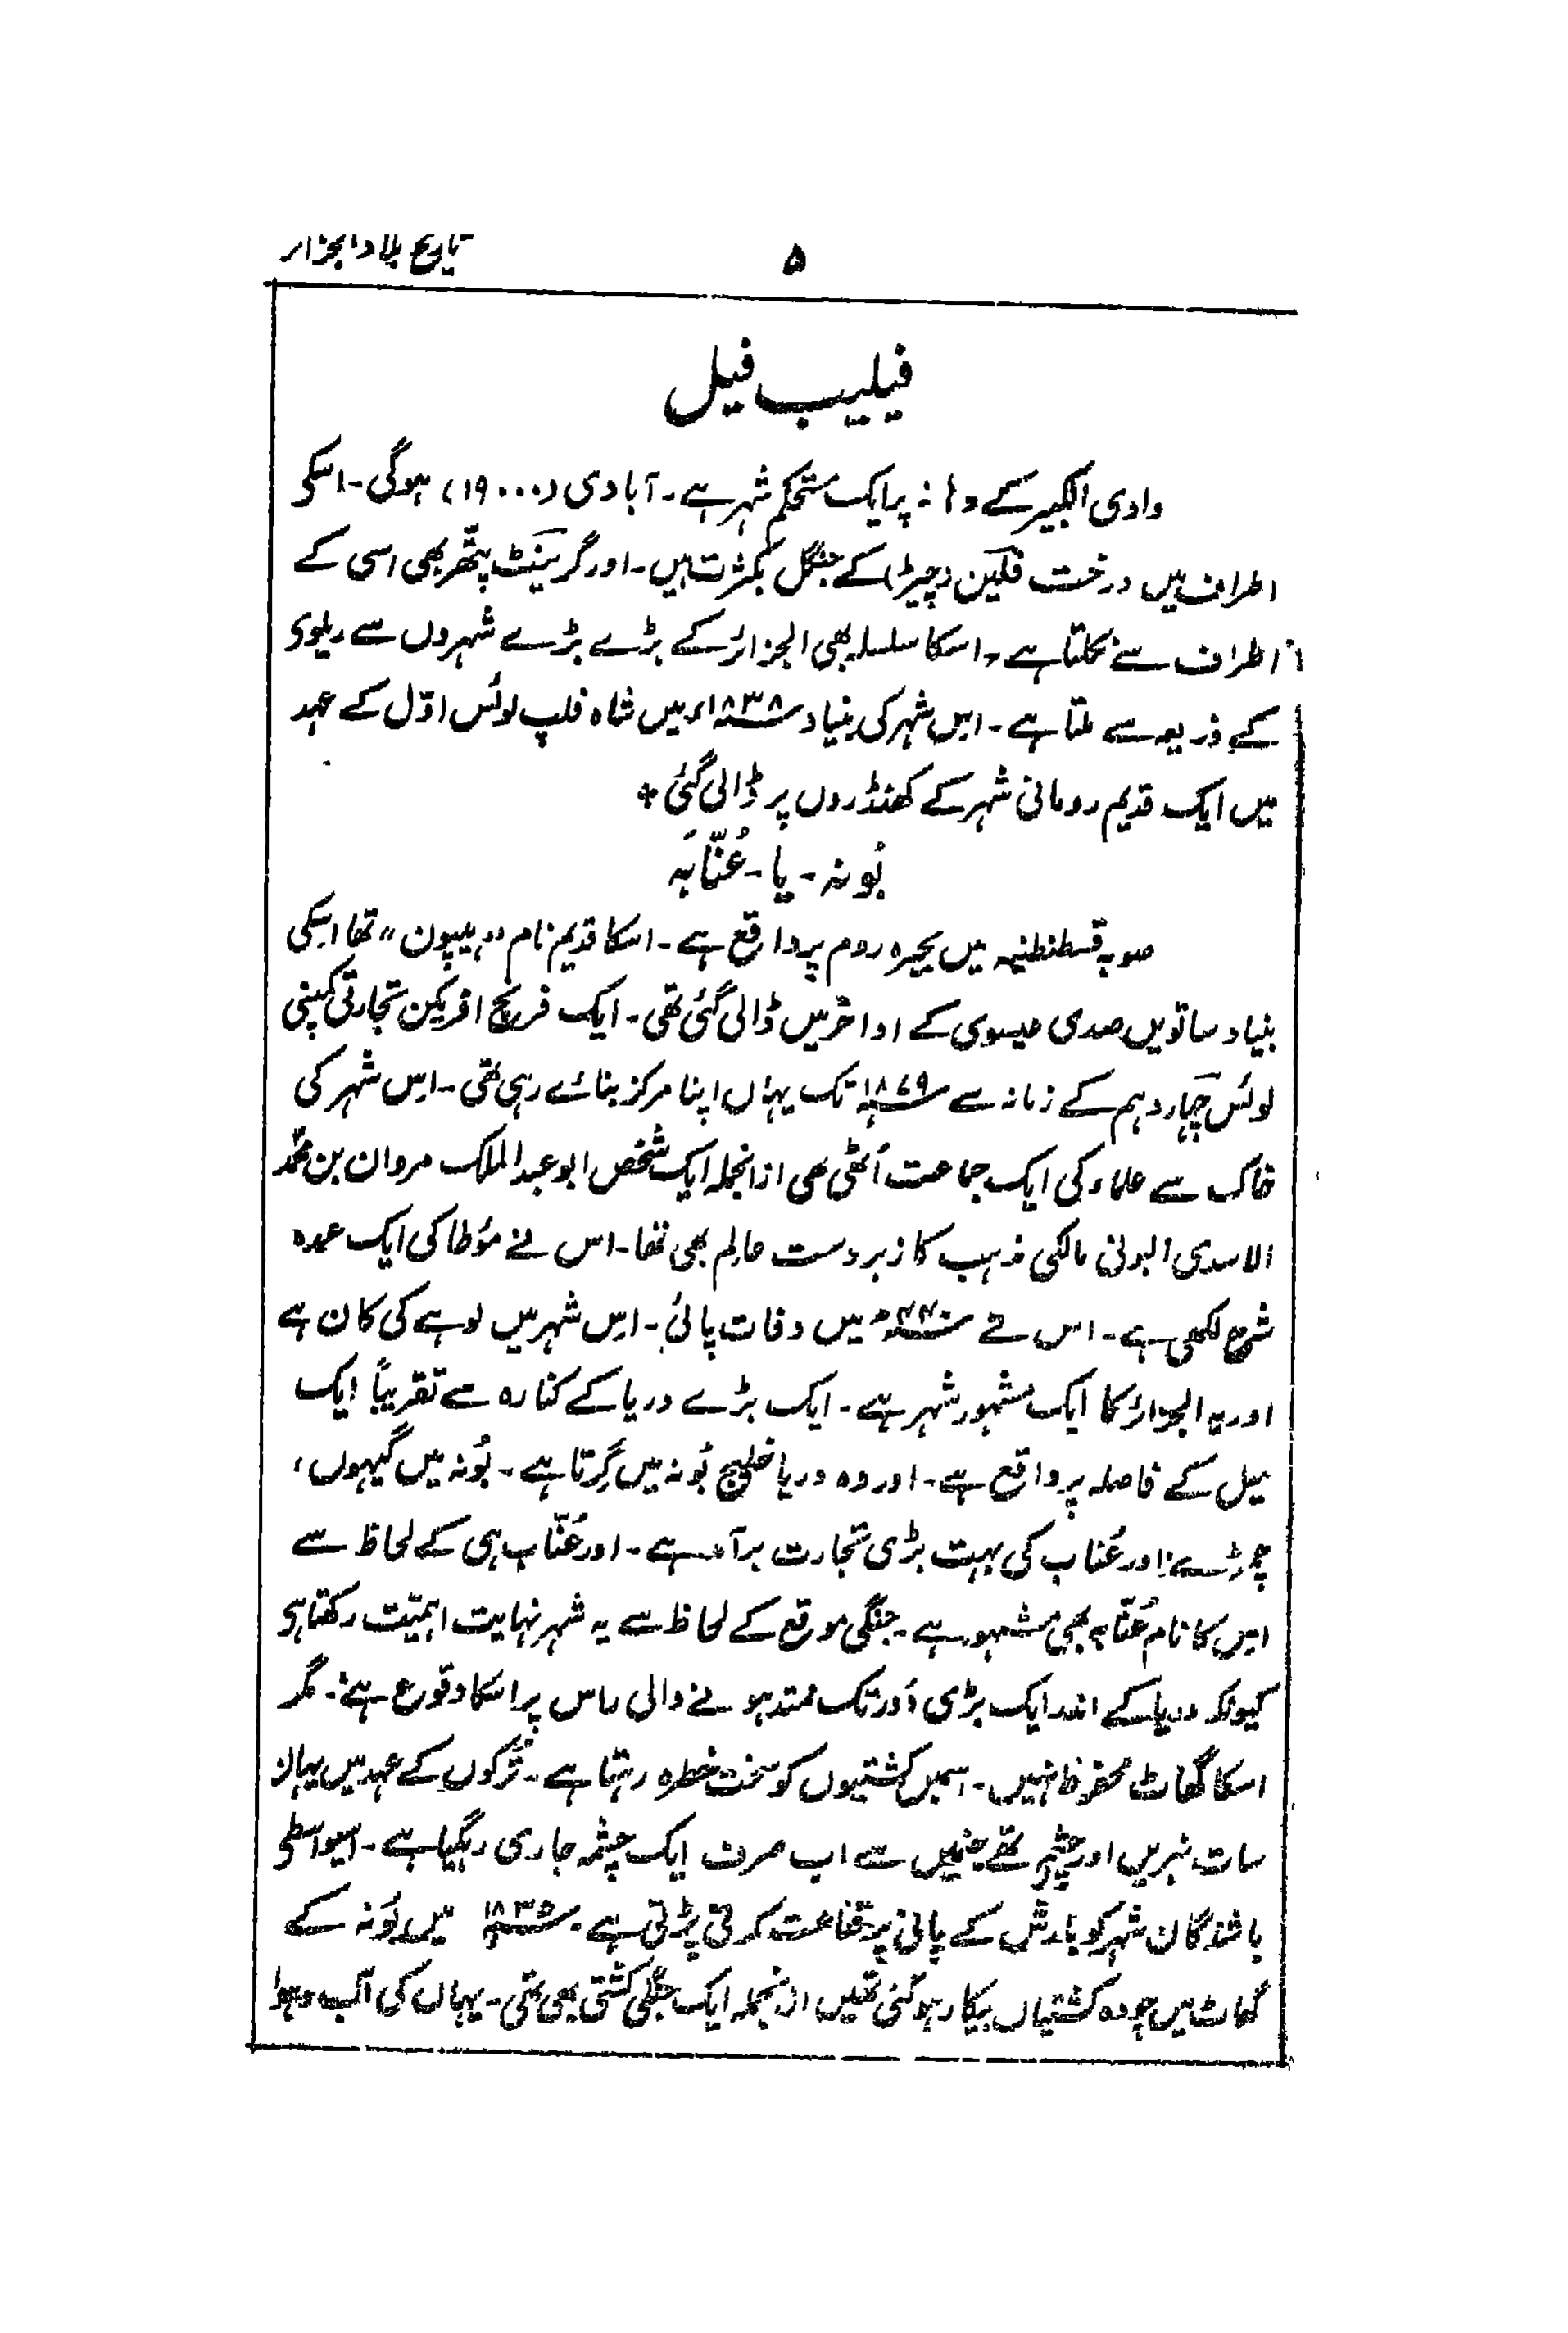 ۵ تاریخ بلاد الجزائر
فیلیپ فیل
وادی الکبیر کے دہانہ پر ایک مستحکم شہر ہے۔ آبادی (۱۹۰۰۰) ہوگی۔ اسکی
اطراف میں درخت فلّین (چیڑ) کے جنگل بکثرت ہیں۔ اور گرینٹ پتھر بھی اسی کے
اطراف سے نکلتا ہے۔ اسکا سلسلہ بھی الجزائر کے بڑے بڑے شہروں سے ریلوی
کے ذریعہ سے ملتا ہے۔ اِس شہر کی بنیاد ۱۸۳۸ء میں شاہ فلپ لوئس اوّل کے عہد
میں ایک قدیم رومانی شہر کے کھنڈروں پر ڈالی گئی +
بُونہ۔ یا۔ عُنّابَہ
صوبہ قسطنطنیہ میں بحیرہ روم پر واقع ہے۔ اسکا قدیم نام ”ہیپون“ تھا اِسکی
بنیاد ساتویں صدی عیسوی کے اواخر میں ڈالی گئی تھی۔ ایک فرنچ افریکن تجارتی کمپنی
لوئس چہاردہم کے زمانہ سے ۱۸۷۹ء تک یہاں اپنا مرکز بنائے رہی تھی۔ اِس شہر کی
خاک سے علماء کی ایک جماعت اُٹھی تھی ازانجملہ ایک شخص ابو عبد الملک مروان بن محمّد
الاسدی البونی مالکی مذہب کا زبردست عالِم بھی تھا۔ اس نے مؤطا کی ایک عمدہ
شرح لکھی ہے۔ اس نے ۴۴۰ھ میں وفات پائی۔ اِس شہر میں لوہے کی کان ہے
اور یہ الجزائر کا ایک مشہور شہر ہے۔ ایک بڑے دریا کے کنارہ سے تقریباً ایک
میل کے فاصلہ پر واقع ہے۔ اور وہ دریا خلیج بُونہ میں گِرتا ہے۔ بُونہ میں گیہوں،
چمڑے، اور عُناب کی بہت بڑی تجارت برآمد ہے۔ اور عُنّاب ہی کے لحاظ سے
اِس کا نام عُنّابہ بھی مشہور ہے۔ جنگی موقع کے لحاظ سے یہ شہر نہایت اہمیّت رکھتا ہی
کیونکہ دریا کے اندر ایک بڑی دُور تک ممتد ہونے والی راس پر اسکا وقوع ہے۔ مگر
اسکا گھاٹ محفوظ نہیں۔ اسمیں کشتیوں کو سخت خطرہ رہتا ہے۔ تُرکوں کے عہد میں یہاں
سات نہریں اور چشمے تھے جنمیں سے اب صرف ایک چشمہ جاری رہگیا ہے۔ اسیواسطی
باشندگان شہر کو بارش کے پانی پر قناعت کرنی پڑتی ہے۔ ۱۸۳۵ء میں بُونہ کے
گھاٹ میں چودہ کشتیاں بیکار ہو گئی تھیں ازانجملہ ایک جنگی کشتی بھی تھی۔ یہاں کی آب و ہوا